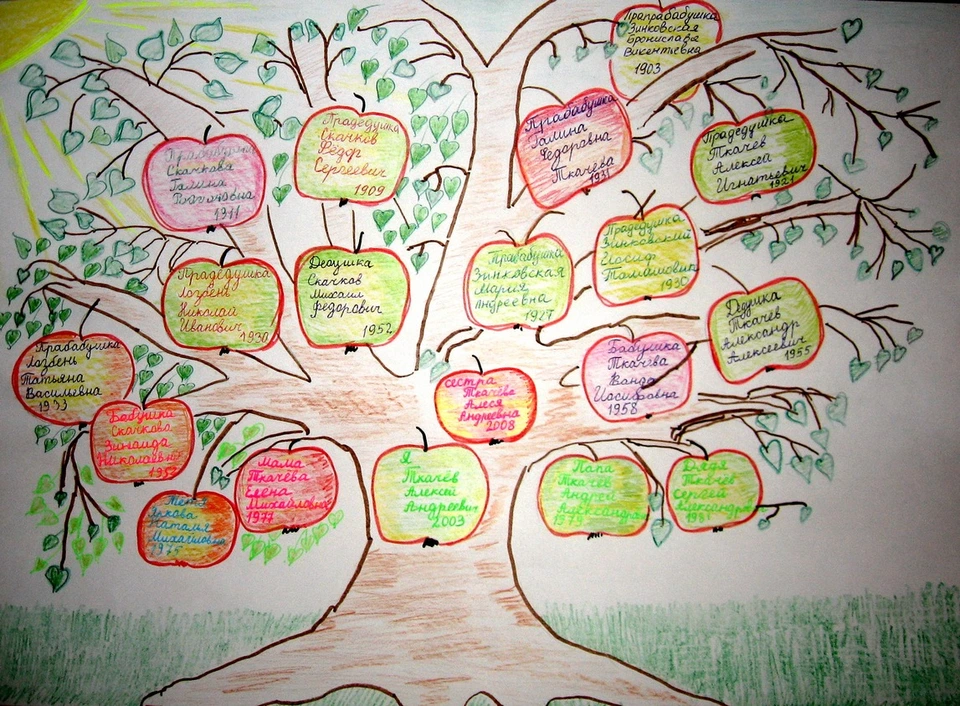 Прапрабабушка
Зинковская
Бронислава
Викентьевна
1903
Прабабушка
Галина
Федоровна
Ткачева
1931
Прадедушка
Скачков
Фёдр
Сергеевич
1909
Прадедушка
Ткачев
Алексей
Игнатьевич
Прабабушка
Скачкова
Галина
1911
Прадедушка
Зинковский
Иосиф
Томашович
1930
Прабабушка
Зинковская
Мария
Андреевна
1927
Дедушка
Скачков
Михаил
Федорович
1952
Прадедушка
Лозбень
Николай
Иванович
1930
Дедушка
Ткачев
Александр
Алексеевич
1955
Прабабушка
Лозбень
Татьяна
Васильевна
1933
Бабушка
Ткачёва
Ванда
Иосифовна
1958
сестра
Ткачёва
Алеся
Андреевна
2008
Бабушка
Скачкова
Зинаида
Николаевна
Мама
Ткачёва
Елена
Михайловна
1977
Я
Ткачёв
Алексей
Андреевич
2003
Папа
Ткачёв
Андрей
1979
Дядя
Ткачёв
Сергей
1981
Тетя
Наталья
Михайловна
1975